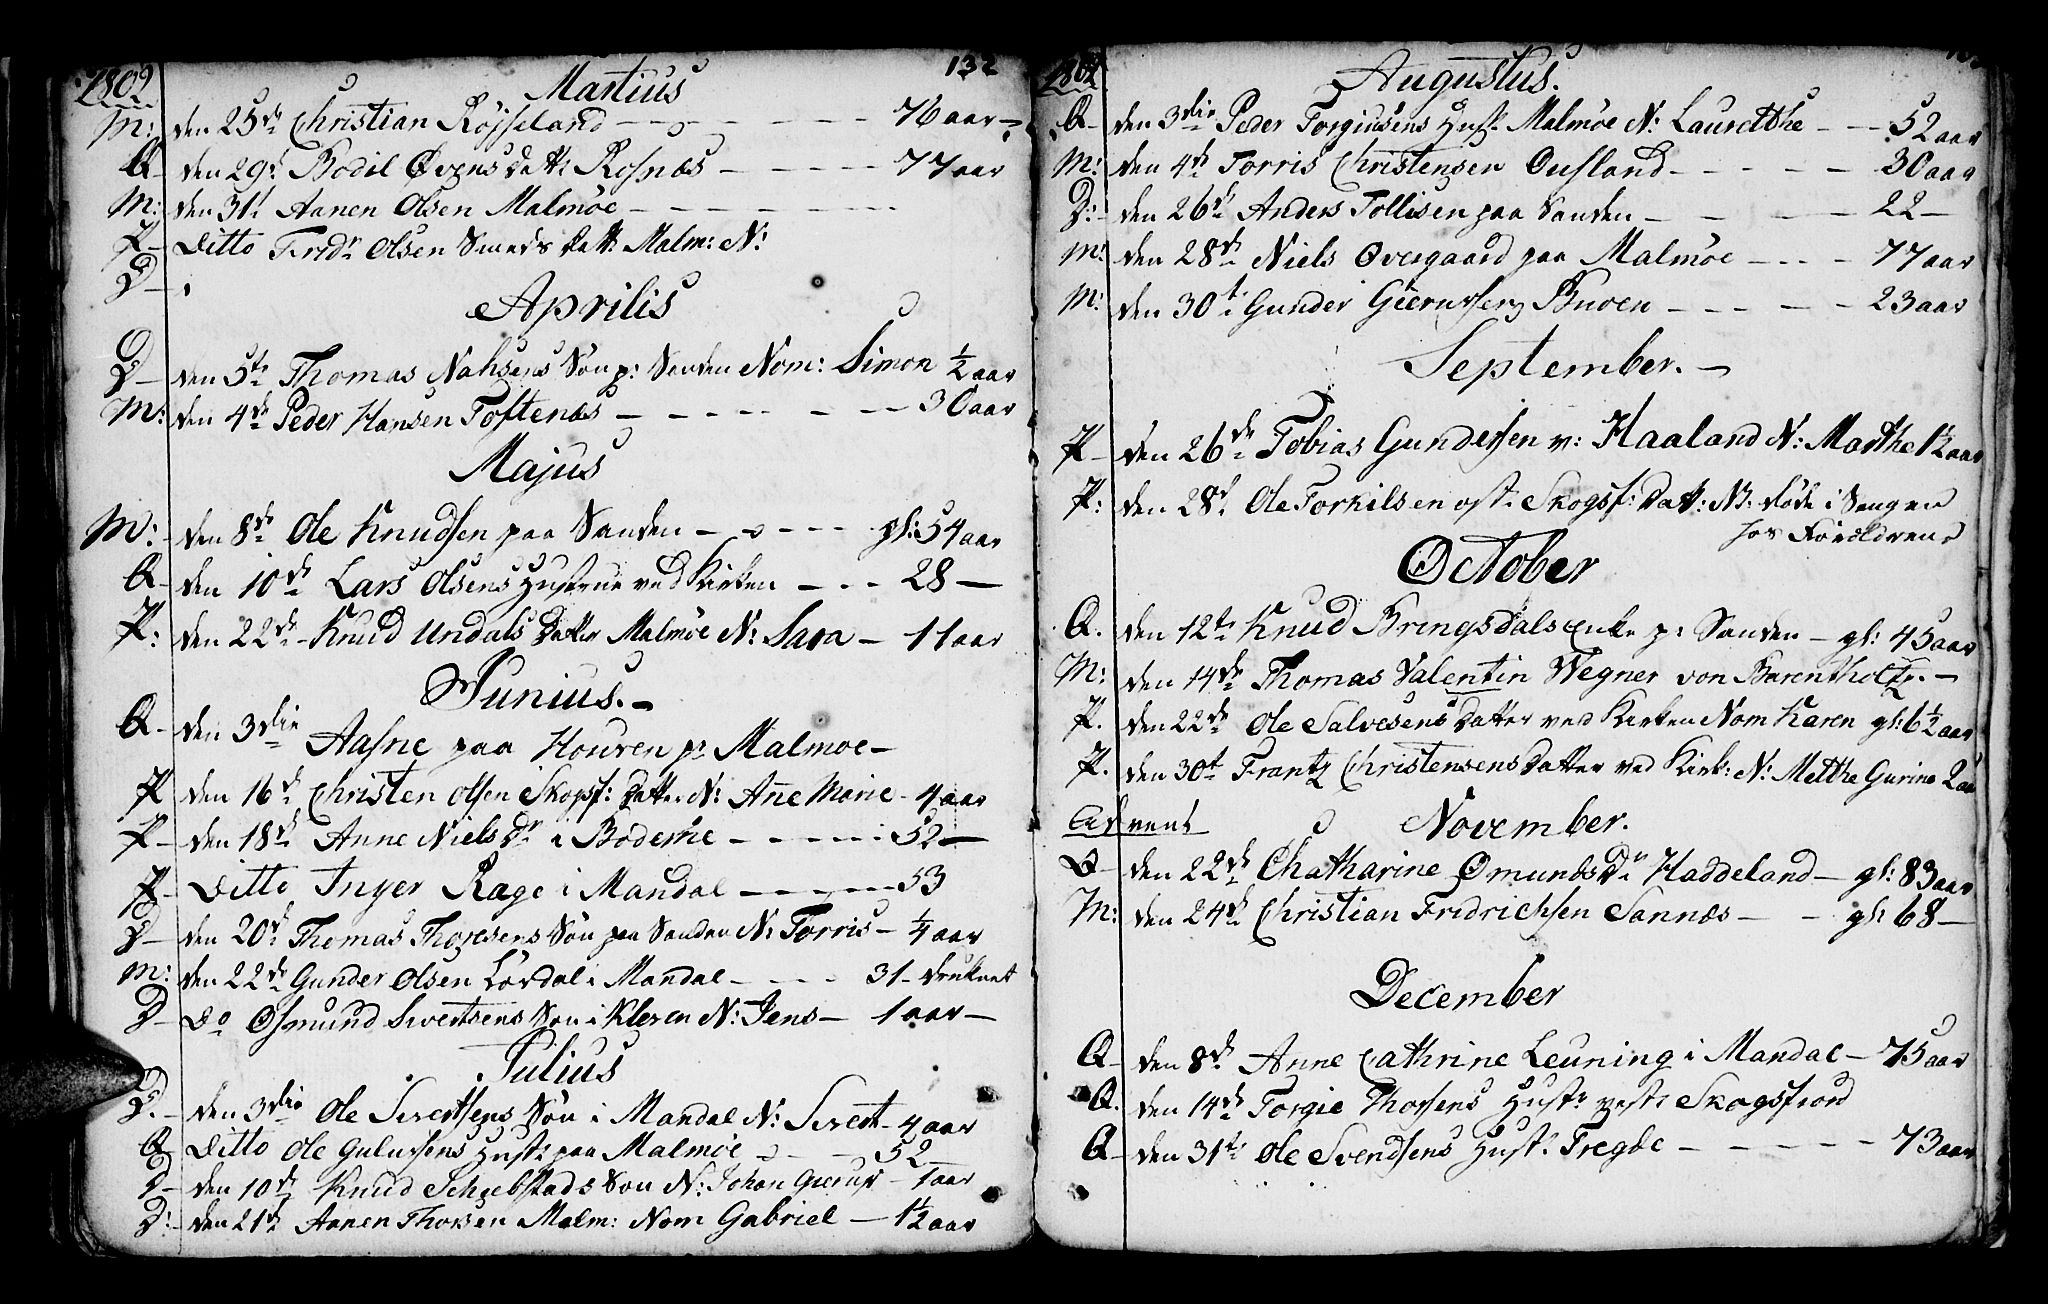 1809
132
Martius
M: den 25de Christian Røjseland 76 aar
Q den 29de Bodil Øvens Datt: Rosnæs 77 aar
M: den 31te Aanen Olsen Malmöe
P Ditto Fridr Olsen Smeds Datt: Malm: N:
D
Aprilis
D den 5te Thomas Nahsens Søn p: Sanden Nom: Simon ½ aar
M: den 4de Peder Hansen Toftenæs 30 aar
Majus
M: den 8de Ole Knudsen paa Sanden gl: 54 aar
Q den 10de Lars Olsens Hustrue ved Kirken 28
P: den 22de Knud Undals Datter Malmöe N: Sara 11 aar
Junius.
Q den 3die Aasne paa Houren p: Malmoe
P den 16de Christen Olsen Skogsf: Datter N: Ane Marie 4 aar
P den 18de Anne Niels Dr i Boderne 52
P Ditto Inger Rage i Mandal 53
D den 20de Thomas Thoresens Søn paa Sanden N: Torris ¼ aar
M: den 22de Gunder Olsen Lørdal i Mandal 31 druknet
D Do Osmund Sivertsens Søn i Kleven N: Jens 1 aar
Julius
D. den 3die Ole Sivertsens Søn i Mandal N: Sivert 4 aar
Q Ditto Ole Gulufsens Hust: paa Malmöe 52
D den 10de Knud Schiebstads Søn N: Johan Gierup 1 aar
D: den 21de Aanen Thorsen Malm: Nom Gabriel 1½ aar
1809
Augustus.
Q den 3die Peder Torgiusens Hust: Malmöe N: Laurelthe 52 aar
M: den 4de Torris Christensen Ousland 30 aar
D: den 26de Anders Tollisen paa Sanden 22
M: den 28de Niels Overgaard paa Malmöe 77 aar
M: den 30te Gunder Gierulsen Buoen 23 aar
September.
P den 26de Tobias Gundersen v: Haaland N: Marthe 1½ aar
P: den 28de Ole Torkilsen øst: Skogsf: Datt: N: døde i Sengen
hos Forældrene
October
Q. den 12te Knud Bringsdals Enke p: Sanden gl: 45 aar
M: den 14de Thomas Valentin Wegner von Barentholtz.
P. den 22de Ole Salvesens Datter ved Kirken Nom Karen gl: 6½ aar
P. den 30te Frantz Christensens Datter ved Kirk: N: Metthe Gurine 2 aar
Advent
November.
Q den 22de Chatharine Omunds Dr Haddeland gl: 83 aar
M: den 24de Christian Fridrichsen Sannæs gl: 68
December
Q den 8de Anne Cathrine Leuning i Mandal 75 aar
Q. den 14de Torgie Thorsens Hust: vest: Skogsfiord
Q den 31te Ole Svendsens Hust: Tregde 73 aar